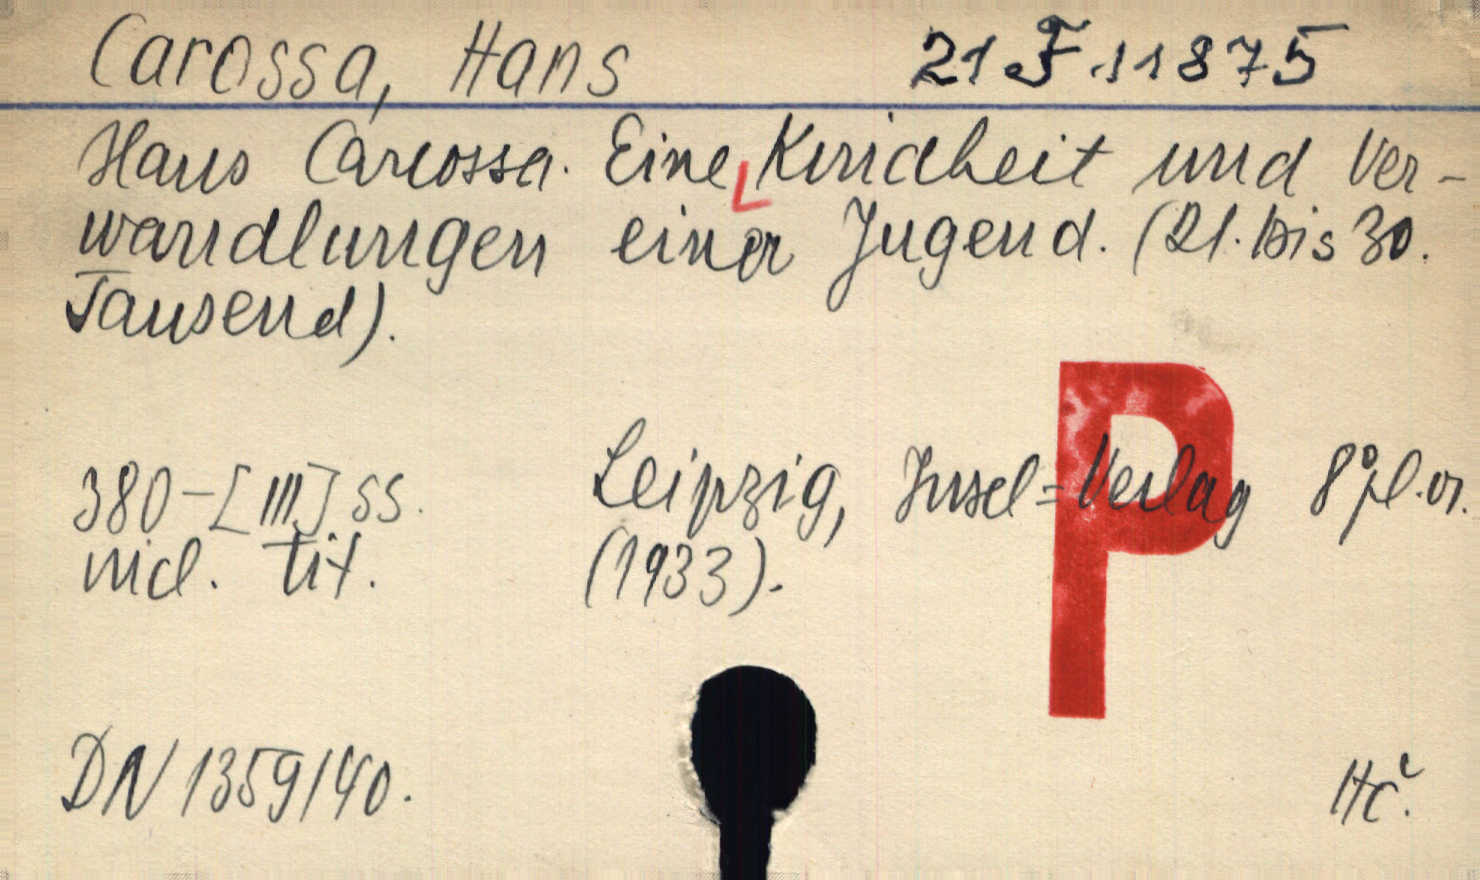 Carossa, Hans 21 F 11875
Hans Carossa. Eine Kindheit und Ver-
wandlungen einer Jugend. (21. bis 30.
Tausend).
P
380-[III] ss. Leipzig, Insel=Verlag 8° pl. or.
incl. tit. (1933).
DN 1359/40. Hč.